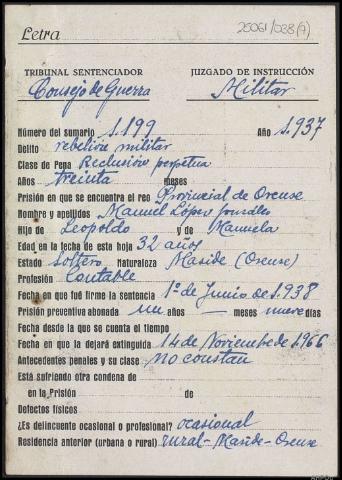 Letra
25061/038(9)
TRIBUNAL SENTENCIADOR JUZGADO DE INSTRUCCIÓN
Consejo de Guerra Militar
Número del sumario 1.199 Año 1.937
Delito rebelión militar
Clase de Pena Reclusión perpetua
Años treinta meses
Prisión en que se encuentra el reo Provincial de Orense
Nombre y apellidos Manuel López
Hijo de Leopoldo y de Manuela
Edad en la fecha de esta hoja 32 años
Estado soltero Naturaleza Maside (Orense)
Profesión Contable
Fecha en que fué firme la sentencia 1º de Junio de 1.938
Prisión preventiva abonada un años — meses nueve días
Fecha desde la que se cuenta el tiempo
Fecha en que la dejará extinguida 14 de Noviembre de 1.966
Antecedentes penales y su clase no constan
Está sufriendo otra condena de
en la Prisión de
Defectos físicos
¿Es delincuente ocasional o profesional? ocasional
Residencia anterior (urbana o rural) rural - Maside - Orense